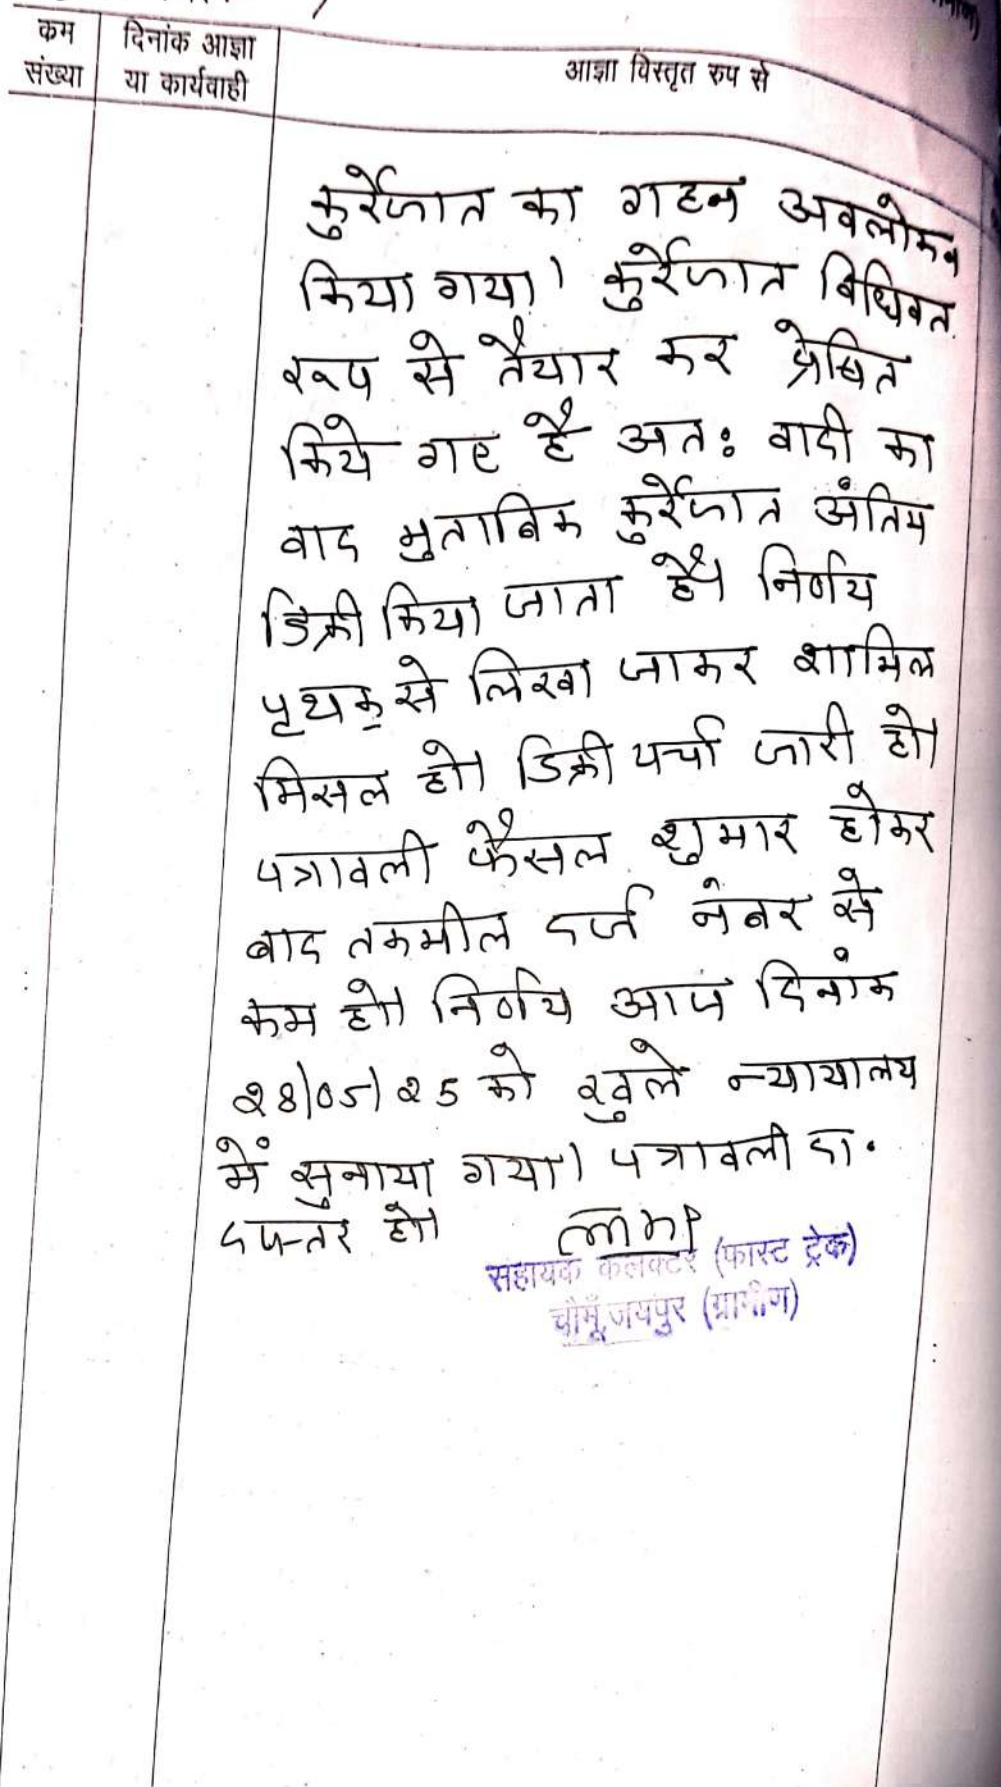 कम
संख्या
दिनांक आज्ञा
या कार्यवाही
आज्ञा विस्तृत रुप से
कुर्रेजात का गहन अवलोकन
किया गया। कुर्रेजात विधिवत
रूप से तैयार कर प्रेषित
किये गए है अतः वादी का
वाद मुताबिक कुर्रेजात अंतिम
डिक्री किया जाता है। निर्णय
पृथक् से लिखा जाकर शामिल
मिसल हो। डिक्री पर्चा जारी हो।
पत्रावली फैसल शुमार होकर
बाद तकमील दर्ज नंबर से
कम हो। निर्णय आज दिनांक
28/05/25 को खुले न्यायालय
में सुनाया गया। पत्रावली दा.
दफ्तर हो।
सहायक कलक्टर (फास्ट ट्रेक)
चौमूँ, जयपुर (ग्रामीण)